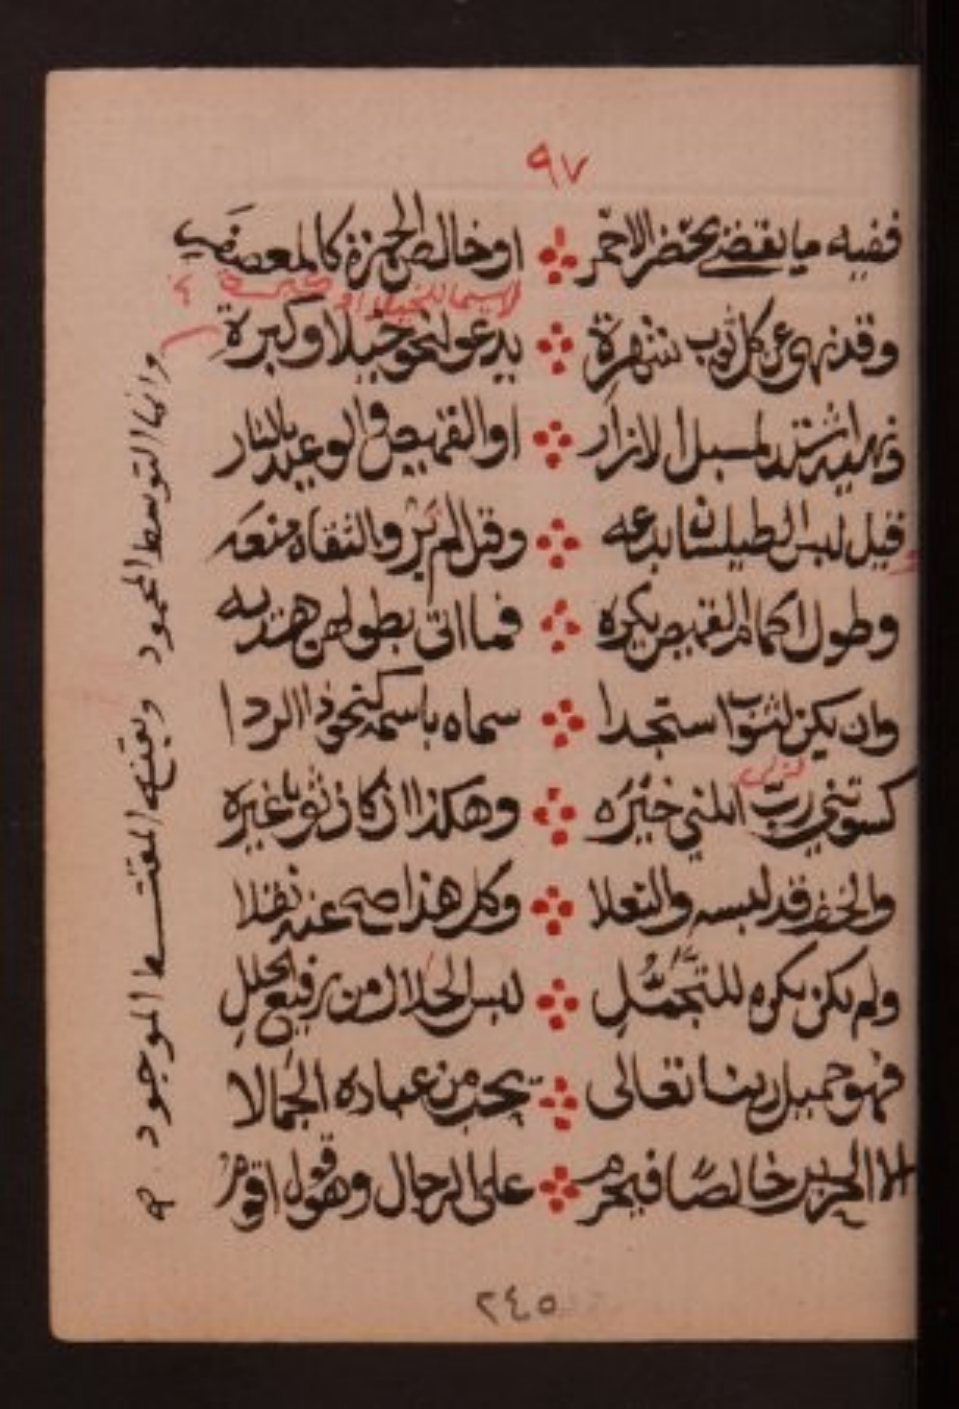 ٩٧
ففيه ما يقضي بحضر الاحمر اوخالص الحمرة كالمعصفر
لاسيما
وقد نهى عن كل ثوب شهرة يدعو لنحو خيلا وكبرة
لمسبل الازار او القميص والوعيد بالنار
قيل لبس الطيلسان بدعه وقل لم يرو والثقاة منعه
وطول اكمام القميص يكره فما اتى بطولهن
وان يكن لثوب استجدا سماه باسمه كنحو ذا الردا
كسوتني رب انلني خيره وهكذا ان كان ثوبا غيره
والخف قد لبسه والنعلا وكل هذا صح عنه نقلا
ولم يكن يكره للتجمل لبس الحلال من رفيع الحلل
فهو جميل ربنا تعالى يحب من عباده الجمالا
الا الحرير خالصا فيحرم على الرجال وهو قول اقوم
وانما التوسط المحمود ويقنع المقتسط الموجود صح
٢٤٥